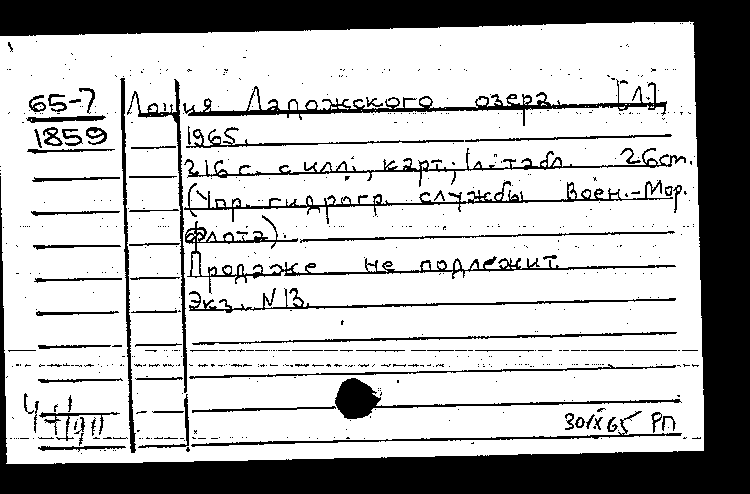 65-7 Лоция Ладожского озера. [Л],
1859 1965.
216 с. с илл., карт.; 1 л. табл. 26 см.
(Упр. гидрогр. службы Воен.-Мор.
флота).
Продаже не подлежит.
Экз. N 13.
30/IX 65 РП